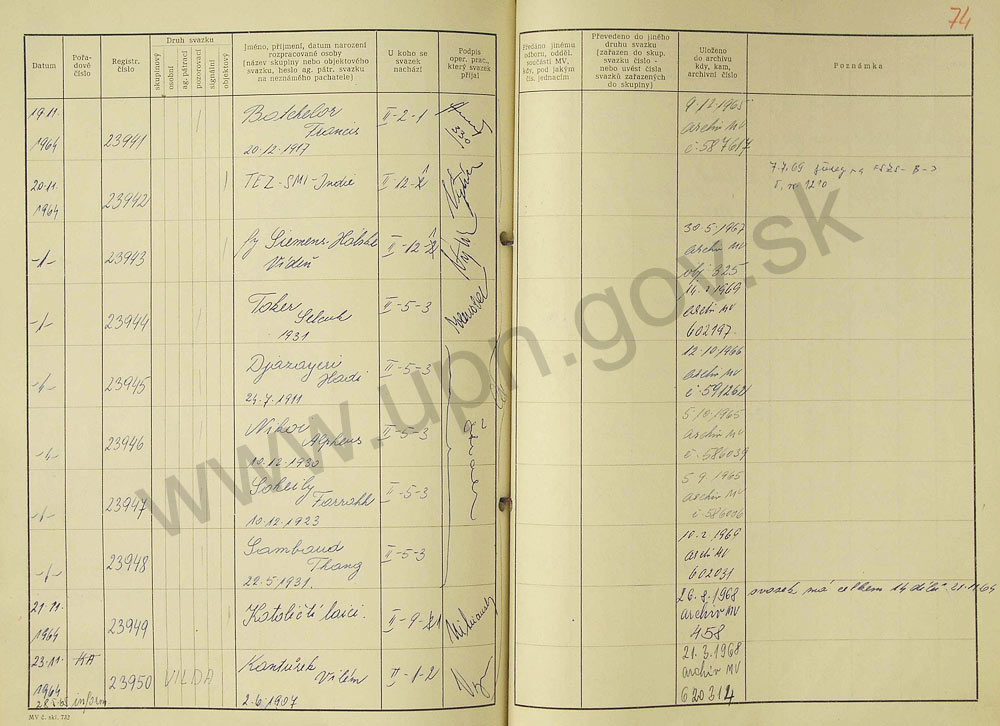 74
Datum
Pořa-
dové
číslo
Registr.
číslo
Druh svazku
skupinový
osobní
ag. pátrací
pozorovací
signální
objektový
Jméno, příjmení, datum narození
rozpracované osoby
(název skupiny nebo objektového
svazku, heslo ag. pátr. svazku
na neznámého pachatele)
U koho se
svazek
nachází
Podpis
oper. prac.,
který svazek
přijal
Předáno jinému
odboru, odděl.
součásti MV,
kdy, pod jakým
čís. jednacím
Převedeno do jiného
druhu svazku
(zařazen do skup.
svazku číslo -
nebo uvést čísla
svazků zařazených
do skupiny)
Uloženo
do archivu
kdy, kam,
archivní číslo
Poznámka
19.11.
1964
23941
Batchelor
Francis
20.12.1917
II-2-1
330
9.12.1965
archiv MV
č. 587617
20.11.
1964
23942
TEZ-SMI-Indie
II-12-
7.7.69
1210
-"-
23943
fy Siemens-Halske
Vídeň
II-12-
30.5.1967
archiv MV
obj. 825
-"-
23944
Toker
Selcuk
1931
II-5-3
1969
archiv MV
602197
-"-
23945
Djazayeri
Hadi
24.7.1911
II-5-3
12.10.1966
archiv MV
č. 591262
-"-
23946
Alpheus
10.12.1930
II-5-3
5.10.1965
archiv MV
č. 586039
-"-
23947
Farrokh
10.12.1923
II-5-3
5.9.1965
archiv MV
-"-
23948
Sambaud
Thang
22.5.1931.
II-5-3
10.2.1969
archiv MV
602031
21.11.
1964
23949
Katoličtí laici.
II-9-
26.8.1968
archiv MV
458
svazek má celkem 14 dílů 21.11.64
23.11.
1964
KA
inform.
23950
VILDA
Kantůrek
Vilém
2.6.1907
II-1-2
21.3.1968
archiv MV
620314
MV č. skl. 732
www.upn.gov.sk